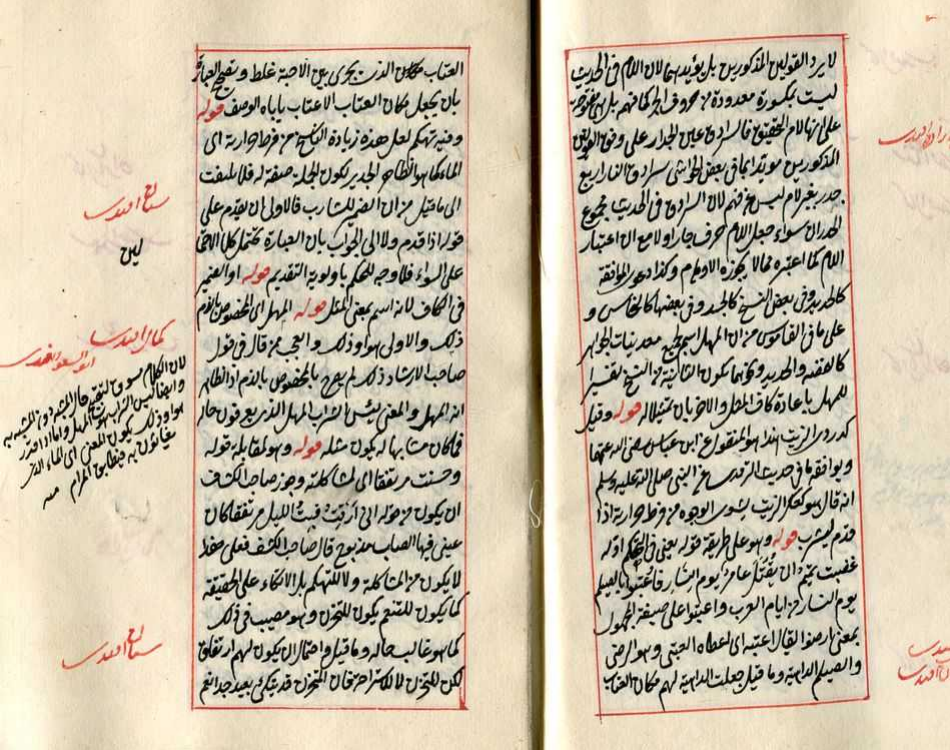 لا يرد القولين المذكورين بل يؤيدهما لان اللام في الحديث
ليست بمكسورة معدودة من حروف الجر كما فهم بل هي مفتوحة
على انها لام التحقيق فالسرادق عين الجدار على وفق القولين
المذكورين مؤيدا بما في بعض الحواشي سرادق النار اربع
جدر بغير لام ليس عن فهم لان السرادق في الحديث مجموع
الجدران سواء جعل اللام حرف جار اولا مع ان اعتبار
اللام كما اعتبره مما لا يجوزه الاوهام وكذا دعوى الموافقة
كالحديد وفي بعض النسخ كالجسد وفي بعضها كالنحاس و
على ما في القاموس من ان المهل اسم يجمع معدنيات الجواهر
كالفضة والحديد ونحوهما يكون الثانية من النسخ تفسيرا
للمهل باعادة كاف المثل والاخريان تمثيلا له قوله وقيل
كدردي الزيت هذا هو المنقول عن ابن عباس رضي الله عنهما
ويوافقه ما في حديث الترمذي عن النبي صلى الله عليه وسلم
انه قال هو كعكر الزيت يشوي الوجوه من فرط حرارته اذا
قدم ليشرب قوله وهو على طريقة قوله يعني في التهكم اوله
غضبت تميم ان يقتل عامر يوم النسار فاعتبوا بالصيلم
يوم النسار من ايام العرب واعتبوا على صيغة المجهول
بمعنى ارضوا يقال اعتبه اي اعطاه العتبى وهو الرضى
والصيلم الداهية وما قيل جعلت الداهية لهم مكان العتاب
العتاب مكان الذي يجري بين الاحبة غلط وتصحيح العبارة
بان يجعل مكان العتاب الاعتاب ياباه الوصف قوله
وفيه تهكم لعل هذه زيادة النسخ من فرط حرارته اي
الماء كما هو الظاهر الجدير بكون الجملة صفة له فلا يلتفت
الى ما قيل من ان الضمير للشارب فالاولى ان يقدم على
قوله اذا قدم ولا الى الجواب بان العبارة تحتمل كلا الامرين
على السواء فلا وجه للحكم باولوية التقديم قوله او الضمير
في الكاف لانه اسم بمعنى المثل قوله المهل اي المخصوص بالذم
ذلك والاولى هو او ذلك والعجب ممن قال في قول
صاحب الارشاد ذلك لم يصرح بالمخصوص بالذم اذ الظاهر
انه المهل والمعنى بئس الشراب المهل الذي يعرفون حاله
فما كان مشابها له يكون مثله قوله وهو لمقابلة قوله
وحسنت مرتفقا اي لمشاكلته وجوز صاحب الكشاف
ان يكون من قوله اني ارقت فبت الليل مرتفقا كان
عيني فيها الصاب مذبوح قال صاحب الكشف فعلى هذا
لا يكون من المشاكلة ولا للتهكم بل الاتكاء على الحقيقة
كما يكون للتنعم يكون للتحزن وهو مصيب في ذلك
كما هو غالب حاله وما قيل واحتمال ان يكون لهم ارتفاق
لكن للتحزن لا للاستراحة فان المتحزن قد يتكئ بعيد جدا نعم
ليس
لان الكلام مسوق لتقبيح حال المشبه دون المشبه به
وايضا ليس الشراب هو المهل واما اذا قدر
هو او ذلك يكون المعنى اي الماء الذي
يغاثون به فيطابق المرام منه